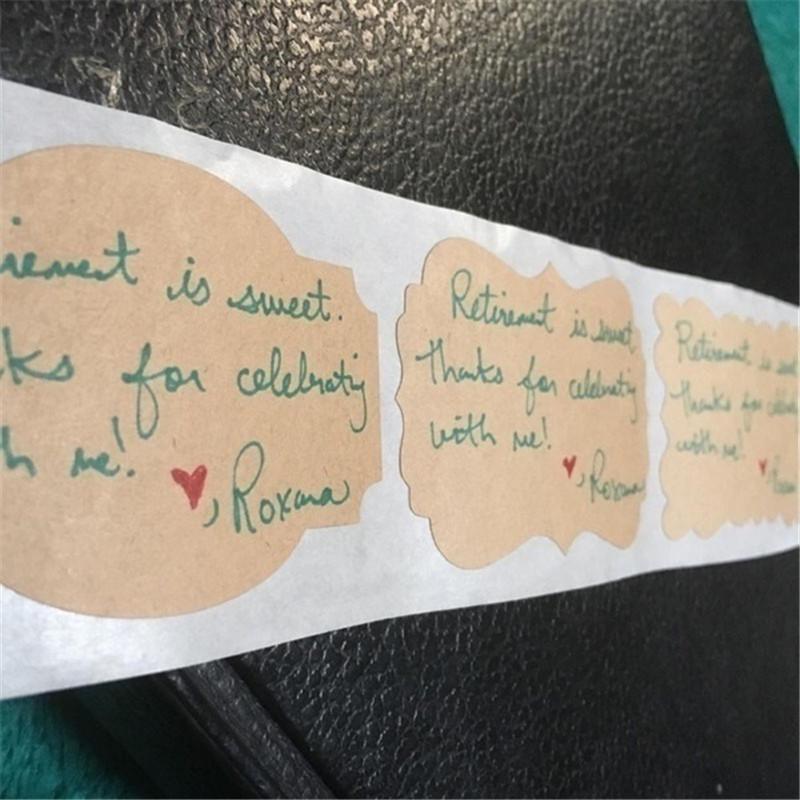 irement is sweet.
ks for celebrating
h me!
, Roxana
Retirement is sweet
Thanks for celebrating
with me!
, Roxana
Retirement is
Thanks for
with me!